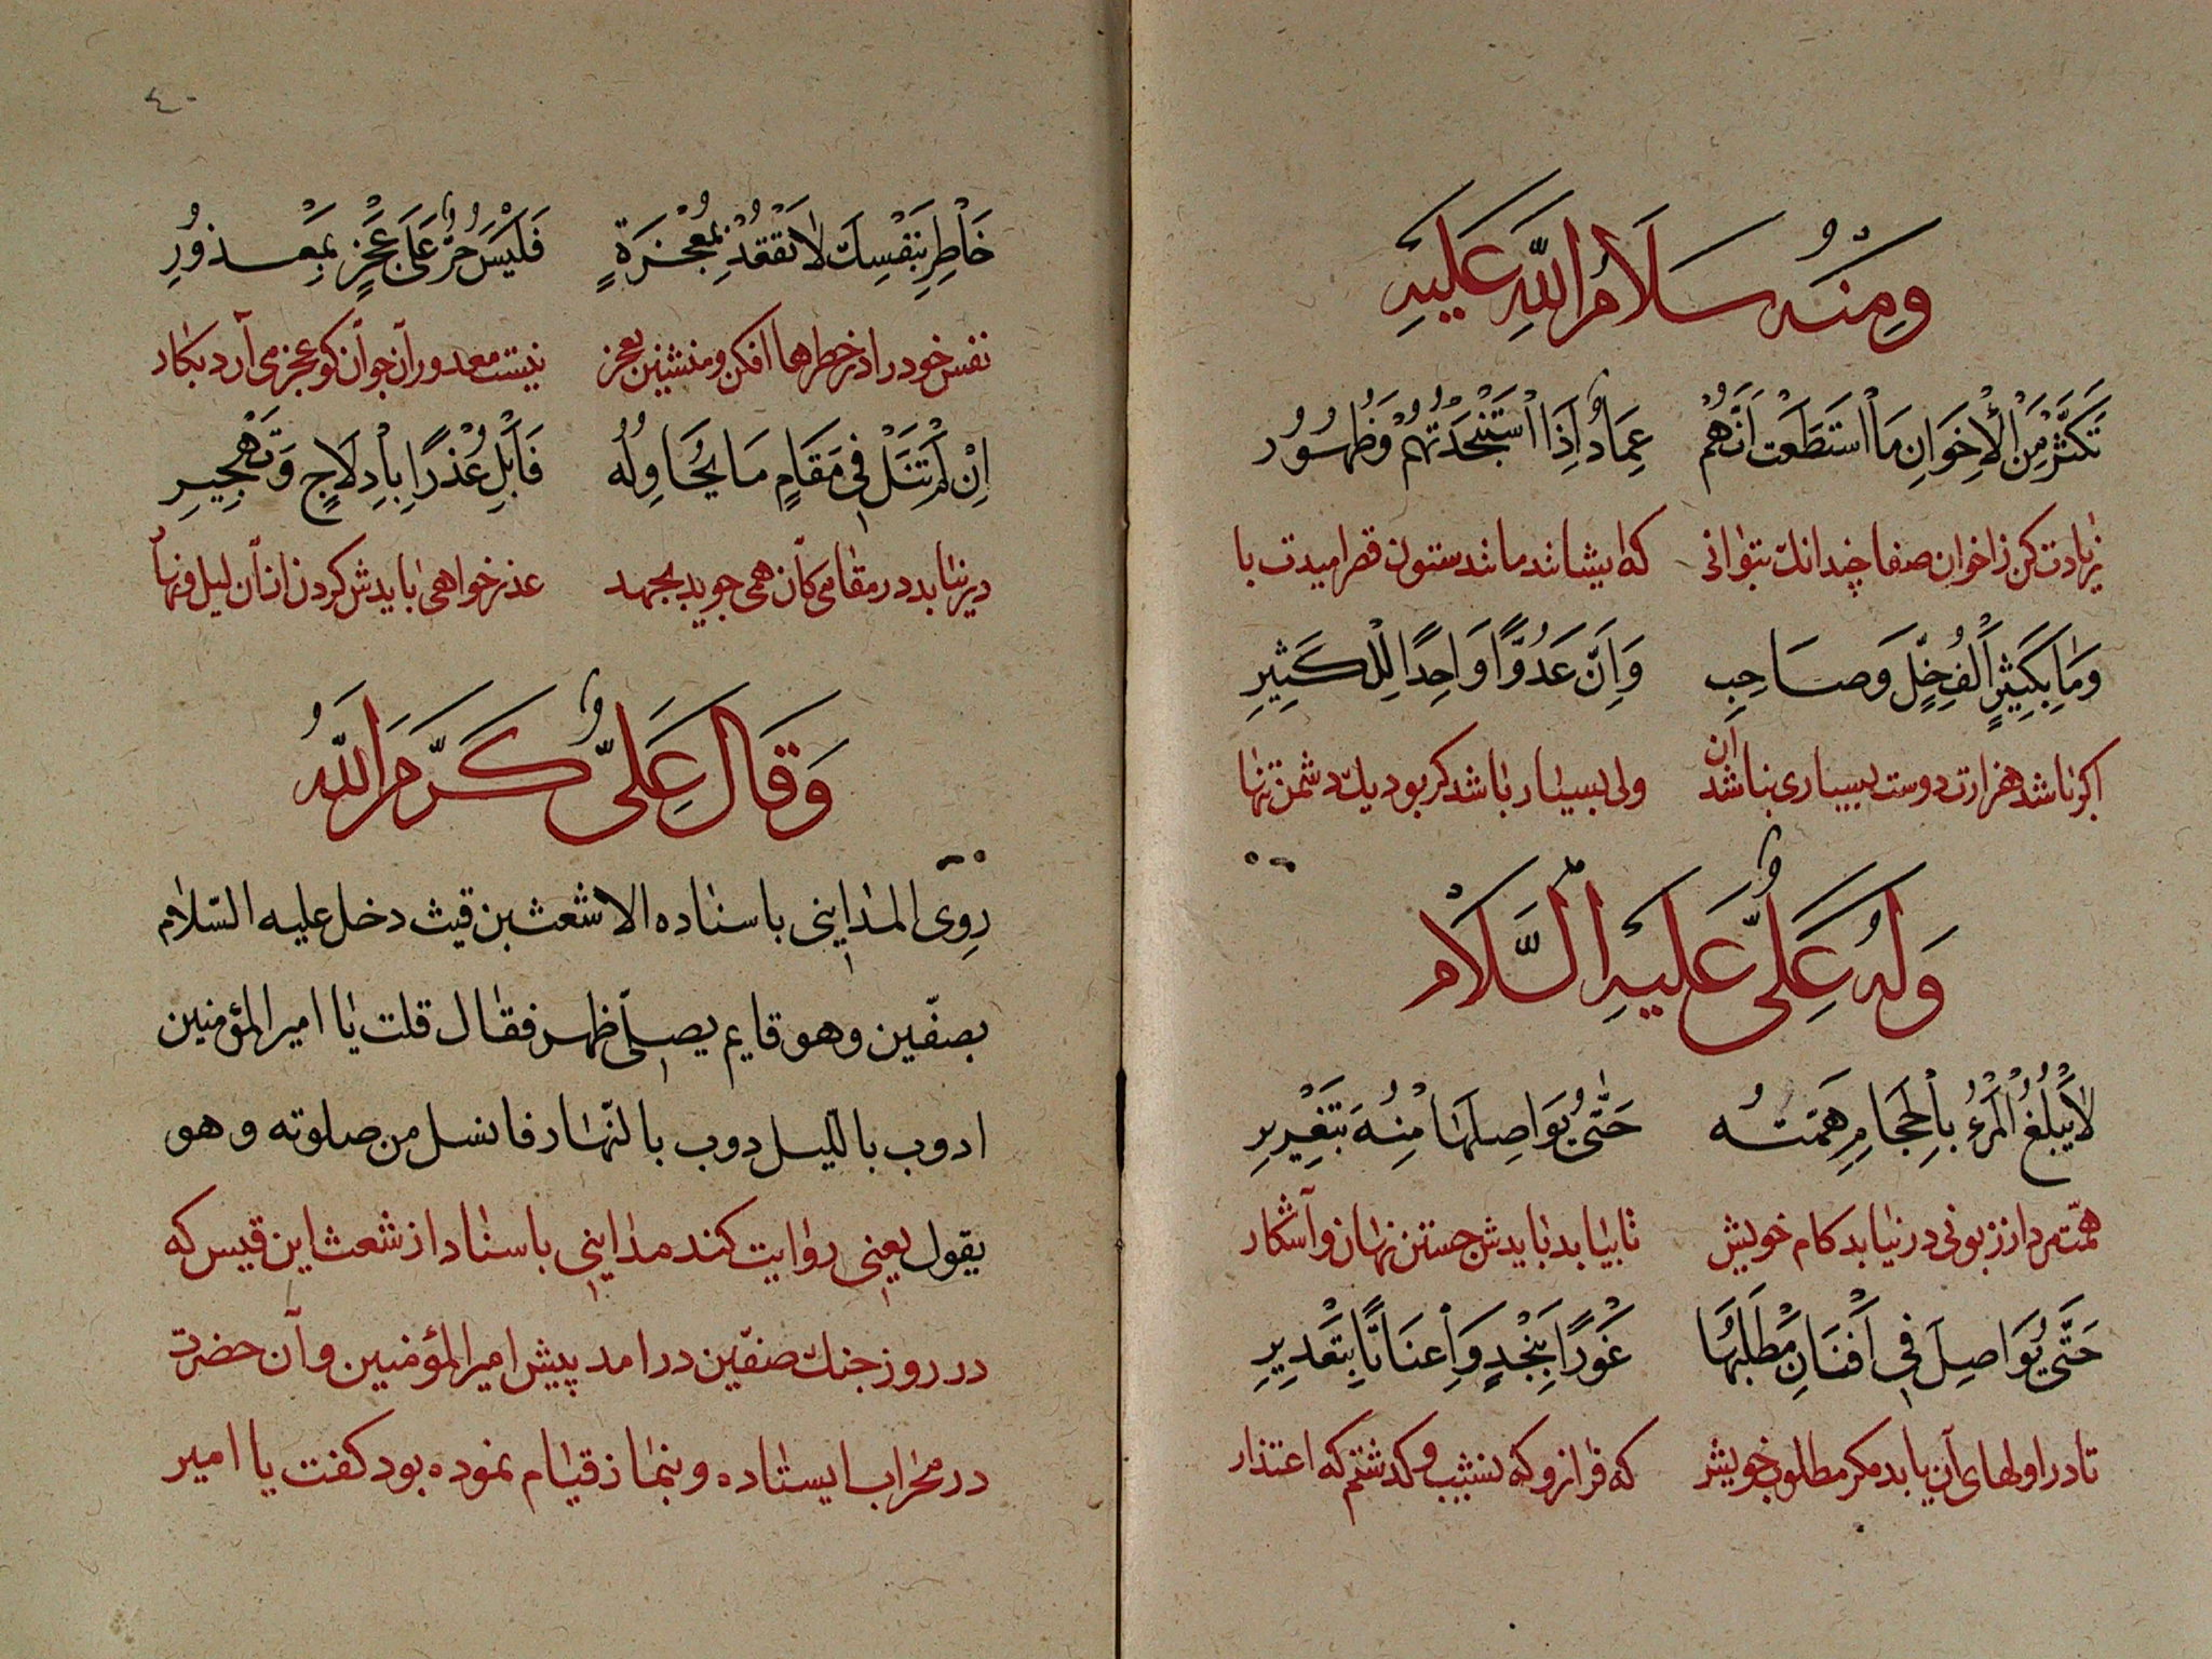 وَمِنْهُ سَلَامُ اللهِ عَلَيْهِ
تَكَثَّرْ مِنَ الْاِخْوَانِ مَا اسْتَطَعْتَ اَنَّهُمْ عِمَادٌ اِذَا اسْتَنْجَدْتُهُمْ وَظُهُورُ
زیادت کن زاخوان صفا چندانك بتوانی که ایشانند مانند ستون قصر امیدت با
وَمَا بِكَثِيْرٍ اَلْفُ خِلٍّ وَصَاحِبٍ وَاِنَّ عَدُوًّا وَاحِدًا لِلْكَثِيْرِ
اکر باشد هزارت دوست بسیاری نباشد آن ولی بسیار باشد کر بود یك دشمن تنها
وَلَهُ عَلِيٌّ عَلَيْهِ السَّلَامُ
لَا يَبْلُغُ الْمَرْءُ بِالْحْجَامِ هِمَّتُهُ حَتّٰى يُوَاصِلَهَا مِنْهُ بِتَغْرِيْرِ
همّت مرد از زبونی در نیابد کام خویش تا بیابد بایدش جستن نهان وآشکار
حَتّٰى يُوَاصِلَ فِى اَفْنَانِ مَطْلَبِهَا غَوْرًا بِنَجْدٍ وَاِعْنَاتًا بِتَعْدِيْرِ
تا در اولهای آن یابد مکر مطلوب خویش که فراز و که نشیب و کذشتم که اعتذار
٤٠
خَاطِرْ بِنَفْسِكَ لَا تَقْعُدْ بِمُعْجَزَةٍ فَلَيْسَ حُرٌّ عَلَى عَجْزٍ بِمَعْذُورِ
نفس خود را در خطرها افکن ومنشین بعجز نیست معدور آن جوان کو عجز می آرد بکار
اِنْ لَمْ تَنَلْ فِى مَقَامٍ مَا يُحَاوِلُهُ فَاَبْلِ عُذْرًا بِاِدْلَاجٍ وَتَهْجِيْرِ
در نیابد در مقامی کان همی جوید بجهد عذر خواهی بایدش کردن از آن لیل و نهار
وَقَالَ عَلِيٌّ كَرَّمَ اللهُ
روى المداينى باسناده الاشعث بن قيث دخل عليه السّلام
بصفّين وهو قايم يصلّى ظهر فقال قلت يا امير المؤمنين
ادوب بالليل دوب بالنّهار فانسل من صلوته وهو
يقول یعنی روایت کند مداینی باسناد از شعث ابن قیس که
در روز جنك صفّین درامد پیش امیر المؤمنین وآن حضرت
در محراب ایستاده وبنماز قیام نموده بود کفت یا امیر